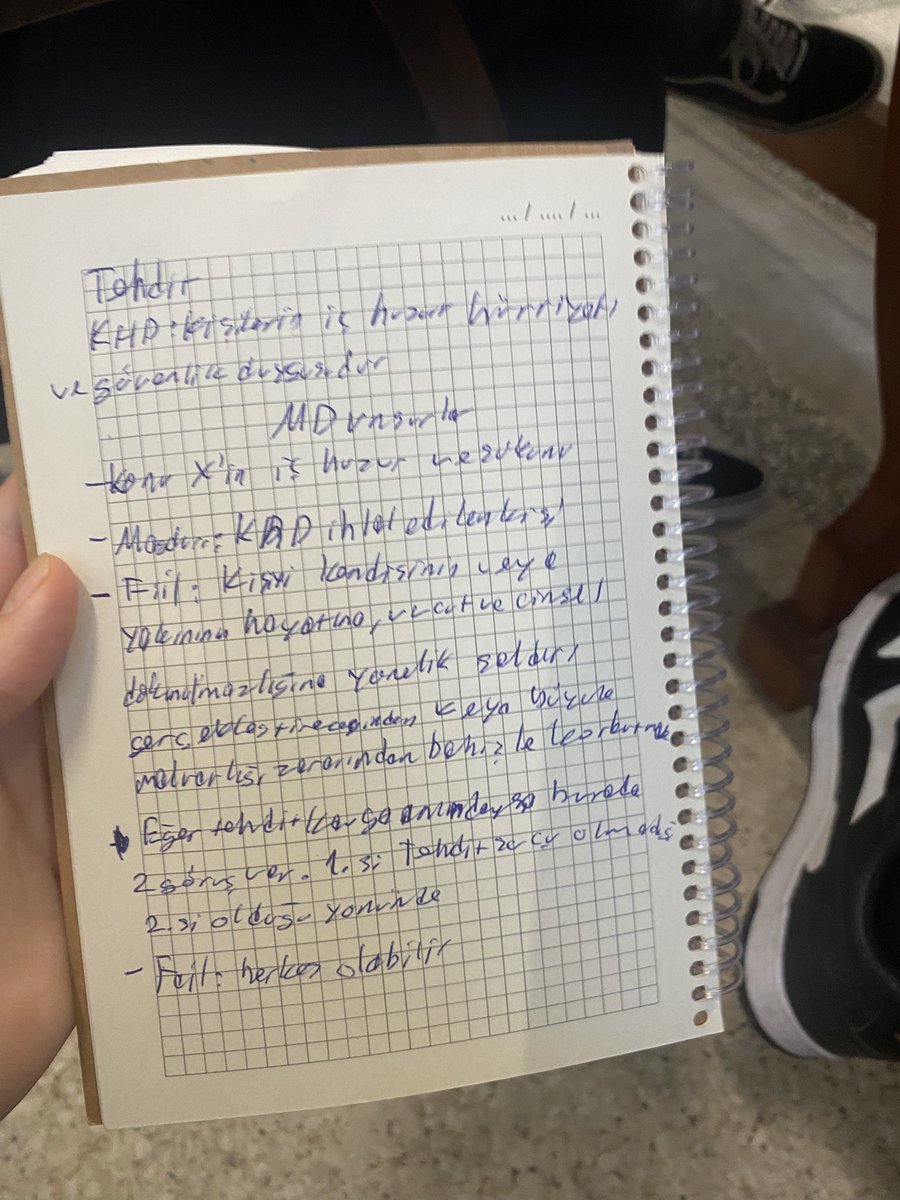 ... / .... / ...
Tehdit
KHD: Kişilerin iç huzur hürriyeti
ve güvenlik
MD unsurlar
- Konu X'in iç huzur ve sükunu
- Mağdur: KHD ihlal edilen kişi
- Fiil: Kişi kendisinin veya
yakının hayatına, vücut ve cinsel
dokunulmazlığına yönelik saldırı
gerçekleştireceğinden veya büyük
malvarlığı zararından bahis ile korkutmak
Eğer tehdit kavga anındaysa burada
2 görüş var. 1. si tehdit suçu olmadı
2. si olduğu yönünde
- Fail: herkes olabilir